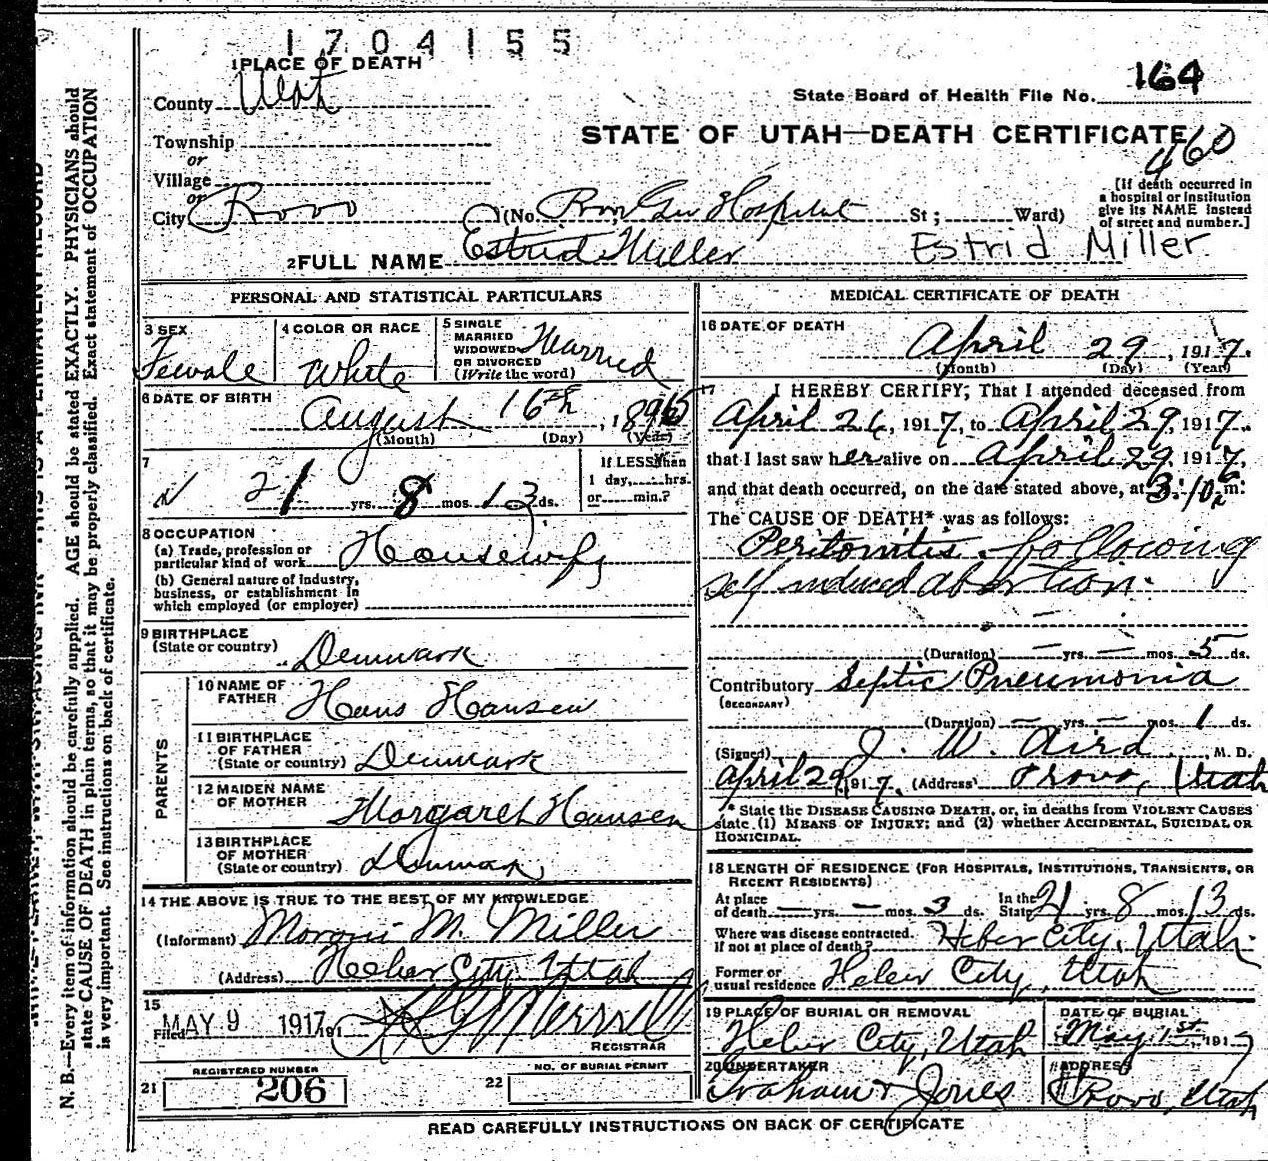 1704155
1 PLACE OF DEATH
County Utah
State Board of Health File No. 164
STATE OF UTAH—DEATH CERTIFICATE
460
Township
or
Village
or
City Provo (No. Prov Gen Hospital St; Ward)
[If death occurred in
a hospital or institution
give its NAME instead
of street and number.]
2 FULL NAME Estrid Miller Estrid Miller
PERSONAL AND STATISTICAL PARTICULARS
3 SEX Female
4 COLOR OR RACE White
5 SINGLE
MARRIED
WIDOWED
OR DIVORCED
(Write the word) Married
6 DATE OF BIRTH August 16th, 1895
(Month) (Day) (Year)
7 21 yrs. 8 mos. 13 ds.
If LESS than
1 day, hrs.
or min.?
8 OCCUPATION
(a) Trade, profession or
particular kind of work Housewife
(b) General nature of industry,
business, or establishment in
which employed (or employer)
9 BIRTHPLACE
(State or country) Denmark
PARENTS
10 NAME OF
FATHER Hans Hansen
11 BIRTHPLACE
OF FATHER
(State or country) Denmark
12 MAIDEN NAME
OF MOTHER Margaret Hansen
13 BIRTHPLACE
OF MOTHER
(State or country) Denmark
14 THE ABOVE IS TRUE TO THE BEST OF MY KNOWLEDGE
(Informant) Moroni M. Miller
(Address) Heber City, Utah
15
Filed MAY 9 1917 191 Merrill
REGISTRAR
21 REGISTERED NUMBER
206
22 NO. OF BURIAL PERMIT
MEDICAL CERTIFICATE OF DEATH
16 DATE OF DEATH
April 29, 1917.
(Month) (Day) (Year)
17 I HEREBY CERTIFY; That I attended deceased from
April 26, 1917, to April 29, 1917.
that I last saw her alive on April 29, 1917,
and that death occurred, on the date stated above, at 3:10 m.
The CAUSE OF DEATH* was as follows:
Peritonitis following
self induced abortion.
(Duration) — yrs. — mos. 5 ds.
Contributory Septic Pneumonia
(SECONDARY)
(Duration) — yrs. — mos. 1 ds.
(Signed) J. W. Aird M. D.
April 29, 1917. (Address) Provo, Utah
* State the DISEASE CAUSING DEATH, or, in deaths from VIOLENT CAUSES
state (1) MEANS OF INJURY; and (2) whether ACCIDENTAL, SUICIDAL OR
HOMICIDAL.
18 LENGTH OF RESIDENCE (FOR HOSPITALS, INSTITUTIONS, TRANSIENTS, OR
RECENT RESIDENTS)
At place
of death — yrs. — mos. 3 ds. In the
State 21 yrs. 8 mos. 13 ds.
Where was disease contracted.
If not at place of death? Heber City, Utah.
Former or
usual residence Heber City, Utah
19 PLACE OF BURIAL OR REMOVAL
Heber City, Utah
DATE OF BURIAL
May 1st, 1917
20 UNDERTAKER
Graham & Jones
ADDRESS
Provo, Utah
READ CAREFULLY INSTRUCTIONS ON BACK OF CERTIFICATE
N. B.—Every item of information should be carefully supplied. AGE should be stated EXACTLY. PHYSICIANS should
state CAUSE OF DEATH in plain terms, so that it may be properly classified. Exact statement of OCCUPATION
is very important. See instructions on back of certificate.